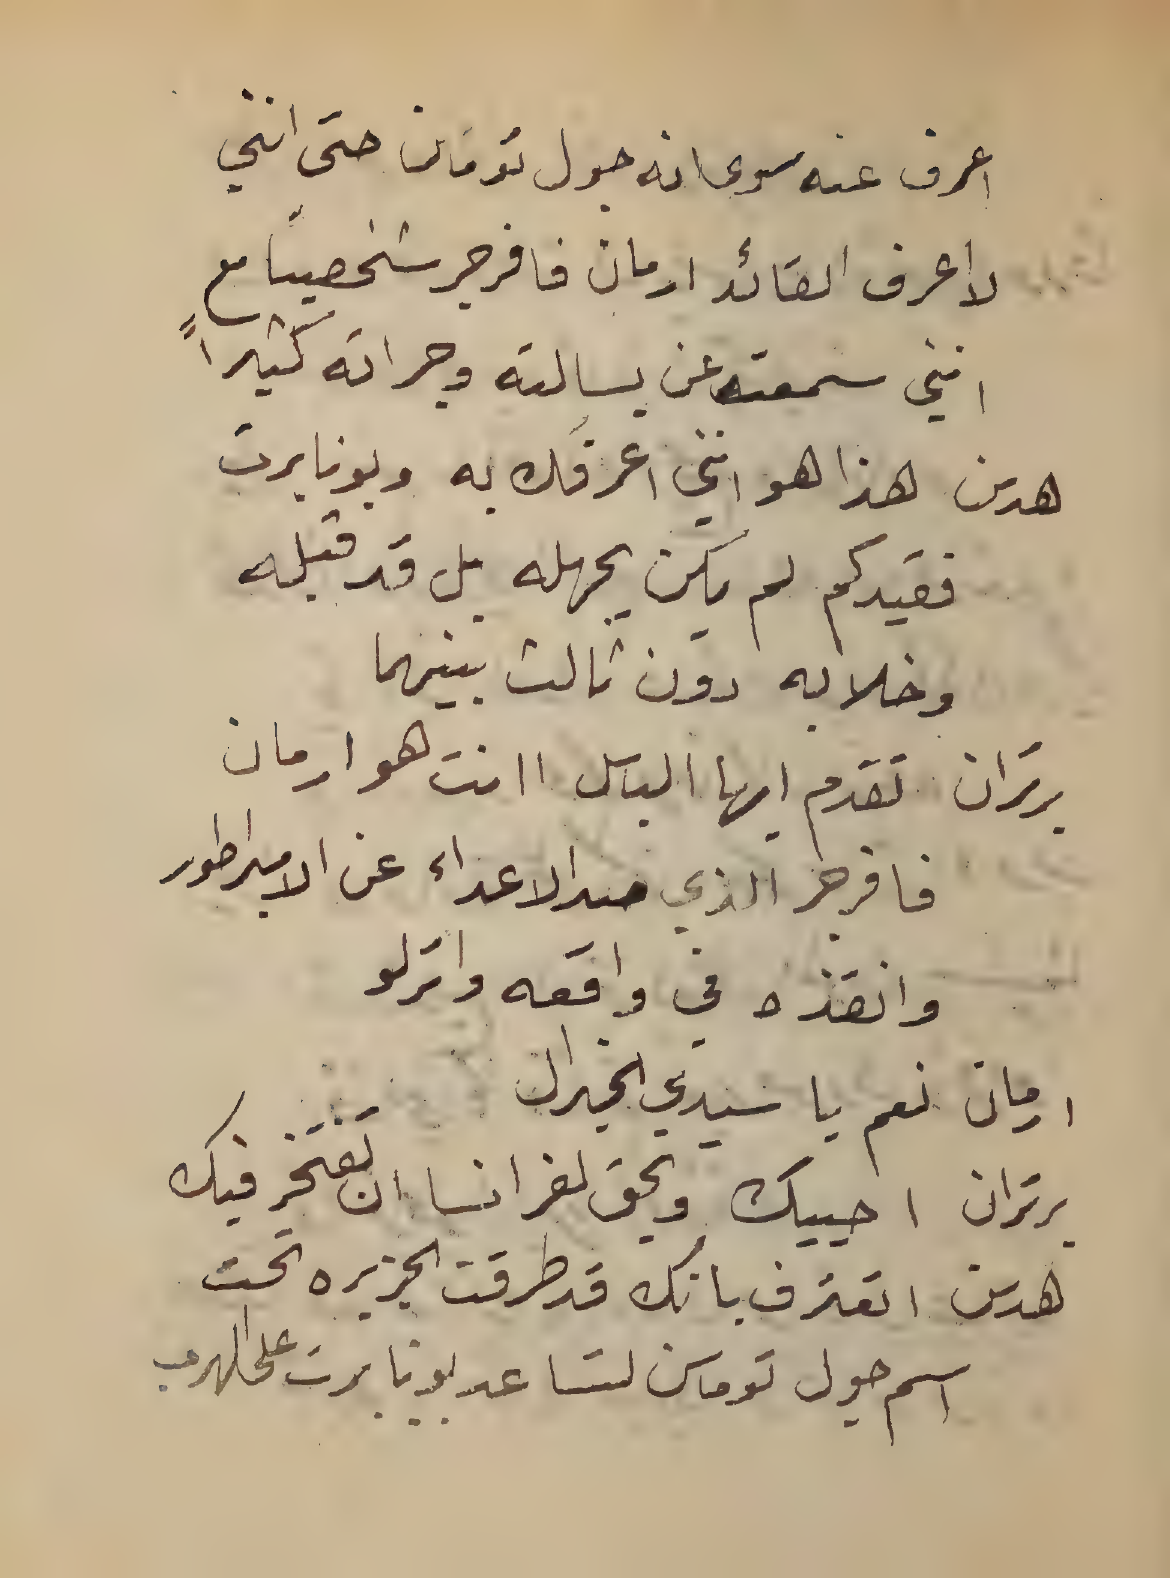 اعرف عنه سوى انه جول توماس حتى انني
لا اعرف القائد ارمان فافرجر شخصياً مع
انني سمعته عن بسالته وجراته كثيراً
هدسن هذا هو انني اعرفك به وبونابرت
فقيدكم لم يكن يجهله بل قد قبله
وخلا به دون ثالث بينهما
برتران تقدم ايها الباسل اانت هو ارمان
فافرجر الذي صد الاعداء عن الامبراطور
وانقذه في واقعه واترلو
ارمان نعم يا سيدي الجنرال
برتران احييك ويحق لفرانسا ان تفتخر فيك
هدسن اتعترف بانك قد طرقت الجزيره تحت
اسم جول توماس لتساعد بونابرت على الهرب